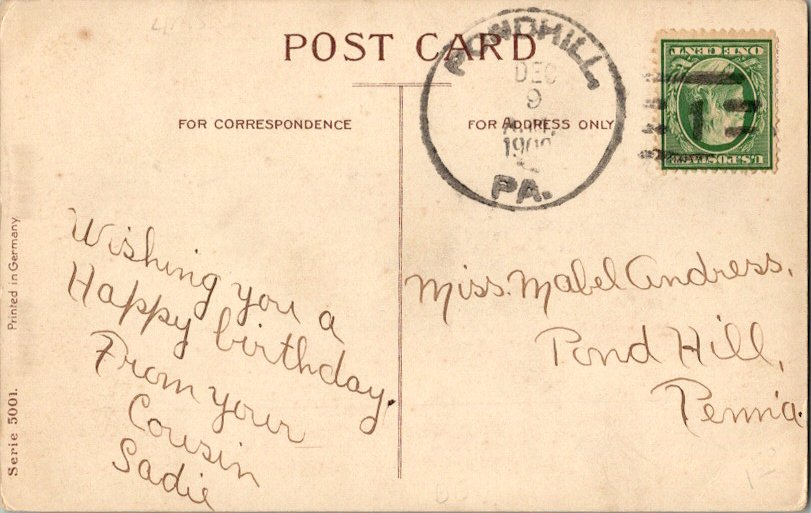 POST CARD
FOR CORRESPONDENCE
FOR ADDRESS ONLY
PONDHILL,
DEC
9
PA.
ONE CENT
U.S. POSTAGE
1
Wishing you a
Happy birthday.
From your
Cousin
Sadie
Miss. Mabel Andress.
Pond Hill,
Penn'a.
Serie 5001. Printed in Germany